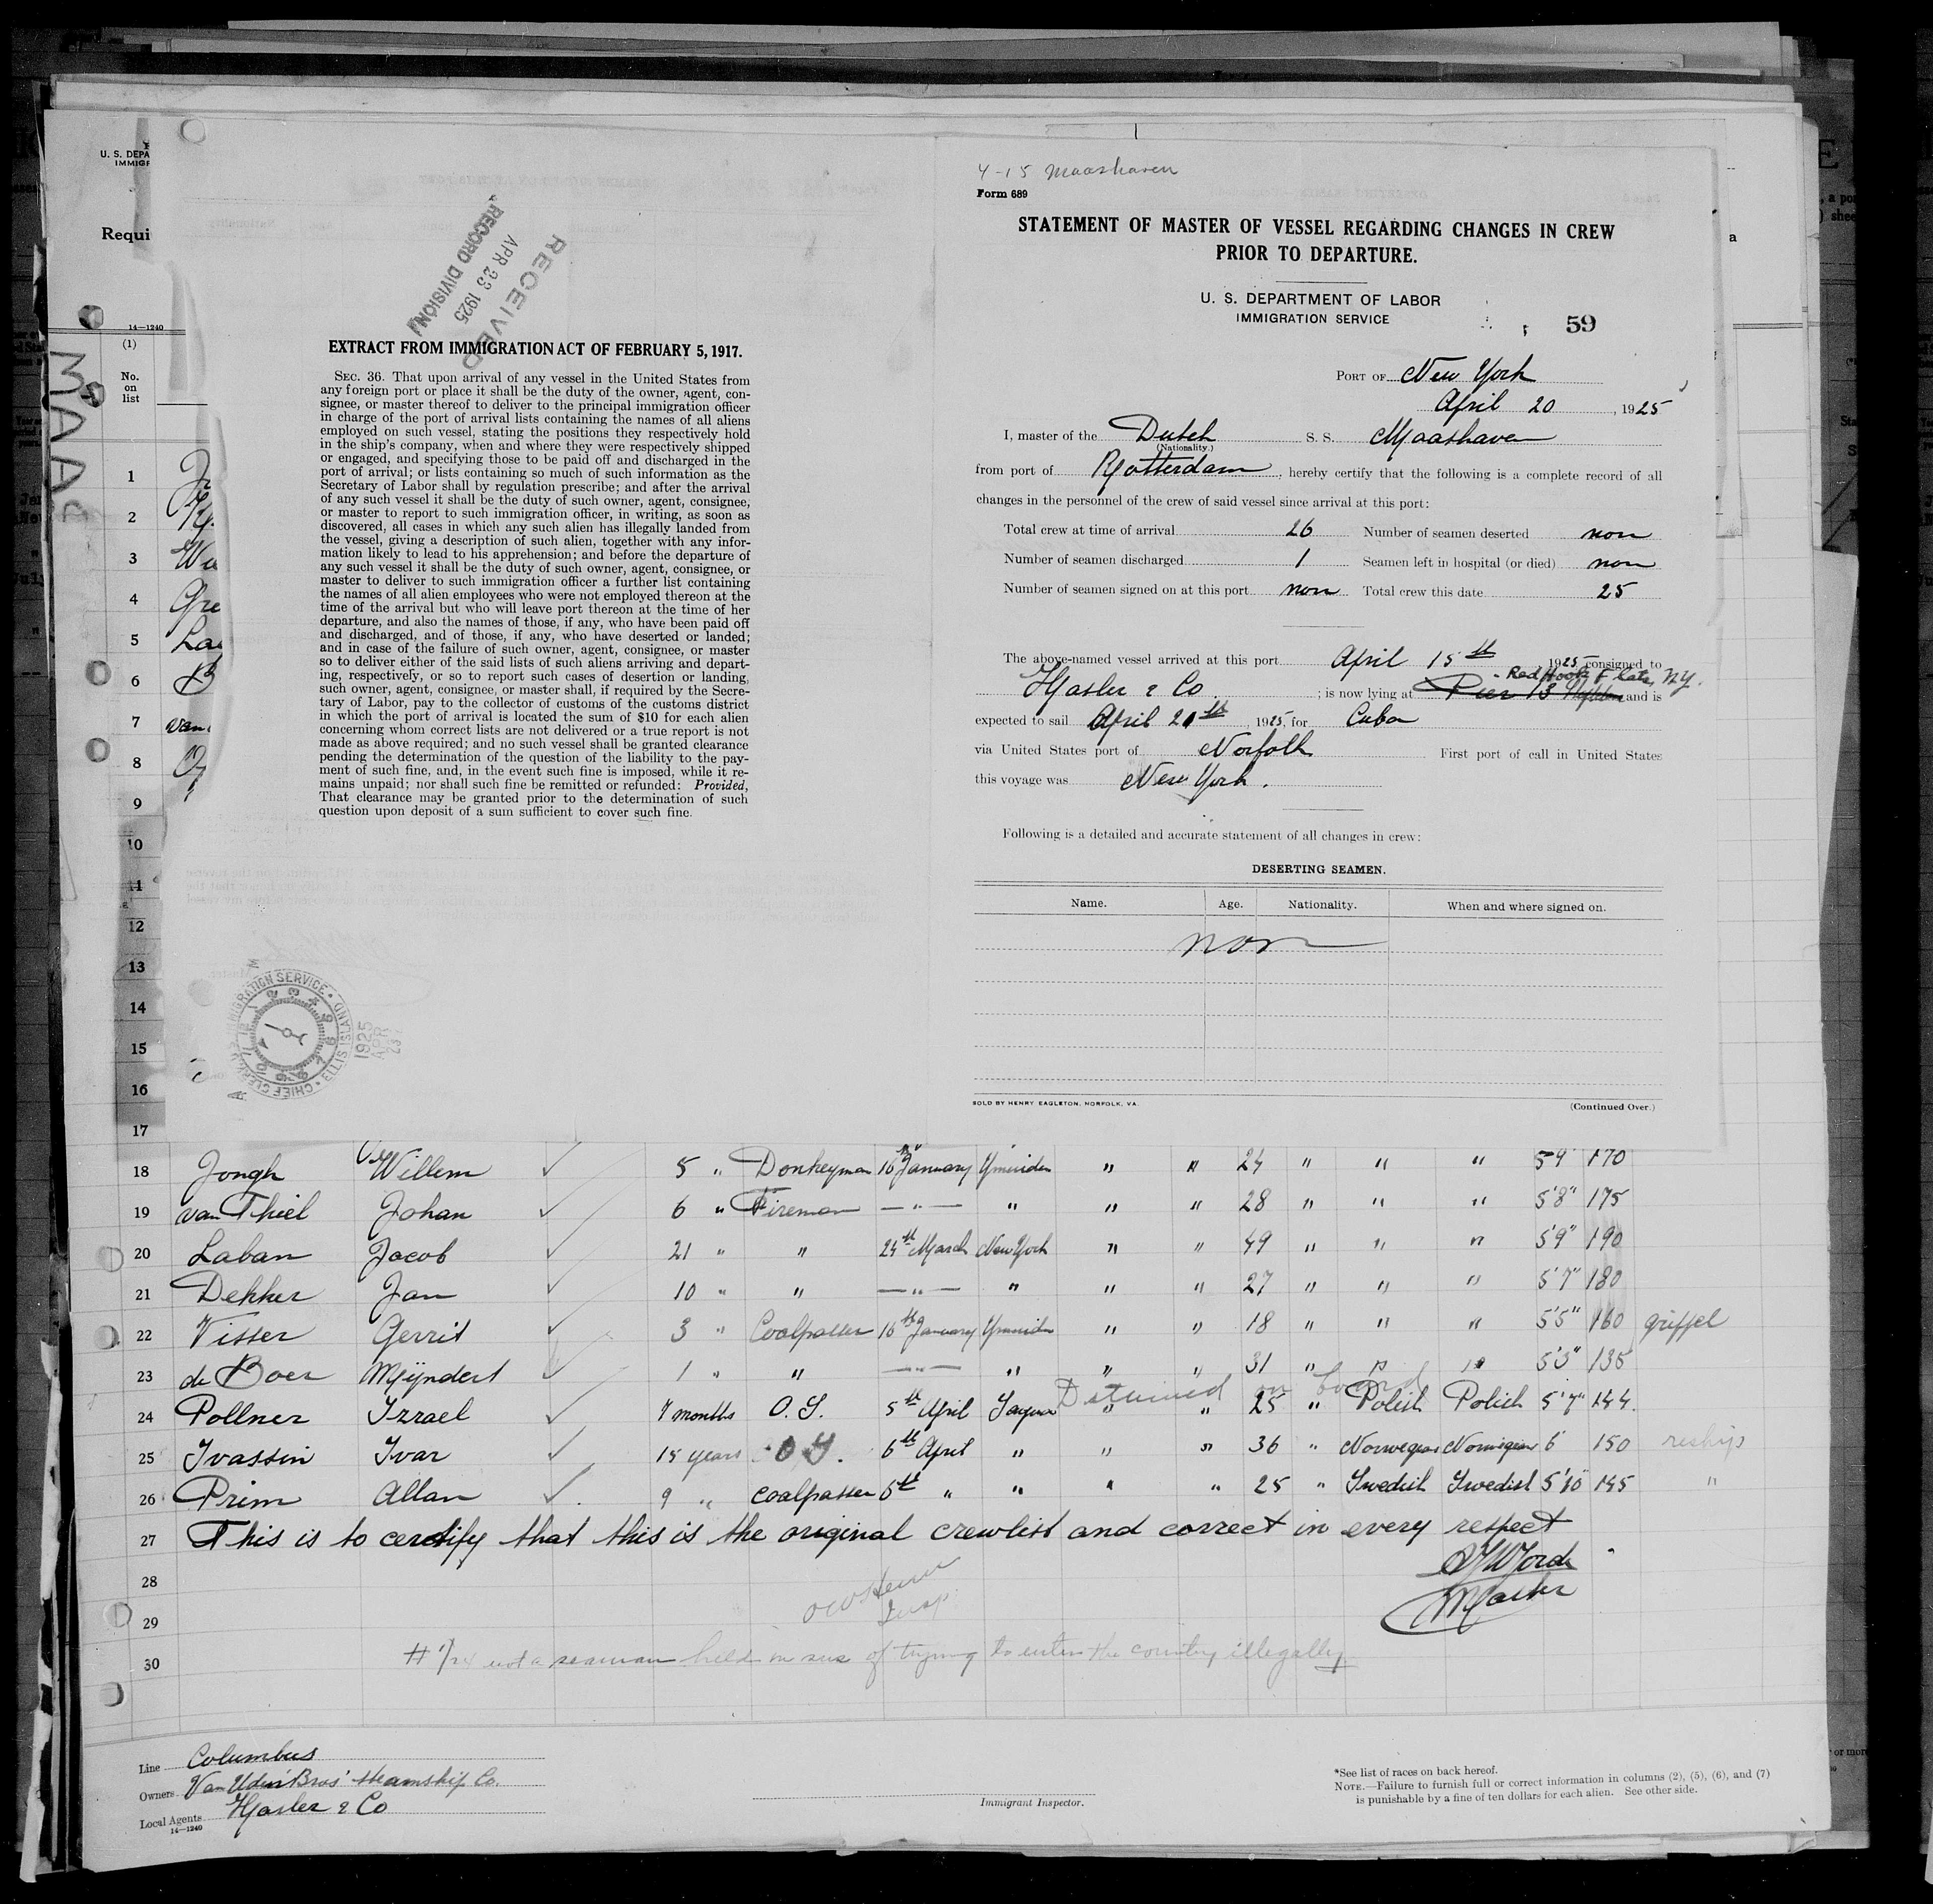 U. S. DEPA
IMMIGR
Requi
14—1240
(1)
No.
on
list
MAA
RECEIVED
APR 23 1925
RECORD DIVISION
EXTRACT FROM IMMIGRATION ACT OF FEBRUARY 5, 1917.
SEC. 36. That upon arrival of any vessel in the United States from
any foreign port or place it shall be the duty of the owner, agent, con-
signee, or master thereof to deliver to the principal immigration officer
in charge of the port of arrival lists containing the names of all aliens
employed on such vessel, stating the positions they respectively hold
in the ship's company, when and where they were respectively shipped
or engaged, and specifying those to be paid off and discharged in the
port of arrival; or lists containing so much of such information as the
Secretary of Labor shall by regulation prescribe; and after the arrival
of any such vessel it shall be the duty of such owner, agent, consignee,
or master to report to such immigration officer, in writing, as soon as
discovered, all cases in which any such alien has illegally landed from
the vessel, giving a description of such alien, together with any infor-
mation likely to lead to his apprehension; and before the departure of
any such vessel it shall be the duty of such owner, agent, consignee, or
master to deliver to such immigration officer a further list containing
the names of all alien employees who were not employed thereon at the
time of the arrival but who will leave port thereon at the time of her
departure, and also the names of those, if any, who have been paid off
and discharged, and of those, if any, who have deserted or landed;
and in case of the failure of such owner, agent, consignee, or master
so to deliver either of the said lists of such aliens arriving and depart-
ing, respectively, or so to report such cases of desertion or landing,
such owner, agent, consignee, or master shall, if required by the Secre-
tary of Labor, pay to the collector of customs of the customs district
in which the port of arrival is located the sum of $10 for each alien
concerning whom correct lists are not delivered or a true report is not
made as above required; and no such vessel shall be granted clearance
pending the determination of the question of the liability to the pay-
ment of such fine, and, in the event such fine is imposed, while it re-
mains unpaid; nor shall such fine be remitted or refunded: Provided,
That clearance may be granted prior to the determination of such
question upon deposit of a sum sufficient to cover such fine.
IMMIGRATION SERVICE • ELLIS ISLAND • CHIEF CLERK
1925
APR
23
4-15 Maashaven
Form 689
STATEMENT OF MASTER OF VESSEL REGARDING CHANGES IN CREW
PRIOR TO DEPARTURE.
U. S. DEPARTMENT OF LABOR
IMMIGRATION SERVICE
59
PORT OF New York
April 20, 1925
I, master of the Dutch S. S. Maashaven
(Nationality.)
from port of Rotterdam, hereby certify that the following is a complete record of all
changes in the personnel of the crew of said vessel since arrival at this port:
Total crew at time of arrival 26 Number of seamen deserted non
Number of seamen discharged 1 Seamen left in hospital (or died) non
Number of seamen signed on at this port non Total crew this date 25
The above-named vessel arrived at this port April 15th 1925 consigned to
Red Hook Flats, N.Y.
Hasler & Co.; is now lying at Pier 13 and is
expected to sail April 21th, 1925, for Cuba
via United States port of Norfolk First port of call in United States
this voyage was New York.
Following is a detailed and accurate statement of all changes in crew:
DESERTING SEAMEN.
Name. Age. Nationality. When and where signed on.
non
SOLD BY HENRY EAGLETON, NORFOLK, VA.
(Continued Over.)
1
2
3
4
5
6
7 van
8
9
10
11
12
13
14
15
16
17
18 Jongh Willem 5 " Donkeyman 16th January Ymuiden " " 24 " " " 5'9 170
19 van Thiel Johan 6 " Fireman —"— " " " 28 " " " 5'8" 175
20 Laban Jacob 21 " " 24th March New York " " 49 " " " 5'9" 190
21 Dekker Jan 10 " " —"— " " " 27 " " " 5'7" 180
22 Visser Gerrit 3 " Coalpasser 16th January Ymuiden " " 18 " " " 5'5" 160 griffel
23 de Boer Meijndert 1 " " —"— " " " 31 " " " 5'5" 135
Detained on board
24 Pollner Izrael 7 months O.S. 5th April " " 25 " Polish Polish 5'7" 144.
25 Ivassin Ivar 15 years O.S. 6th April " " " 36 " Norwegian Norwegian 6' 150 reship
26 Prim Allan 9 " Coalpasser 6th " " " " 25 " Swedish Swedish 5'10 145 "
27 This is to certify that this is the original crewlist and correct in every respect
28
Master
29 Insp.
30 # 1/24 not a seaman held in sus of trying to enter the country illegally
Line Columbus
Owners Van Uden Bros' Steamship Co.
Local Agents Hasler & Co
14—1240
Immigrant Inspector.
*See list of races on back hereof.
NOTE.—Failure to furnish full or correct information in columns (2), (5), (6), and (7)
is punishable by a fine of ten dollars for each alien. See other side.